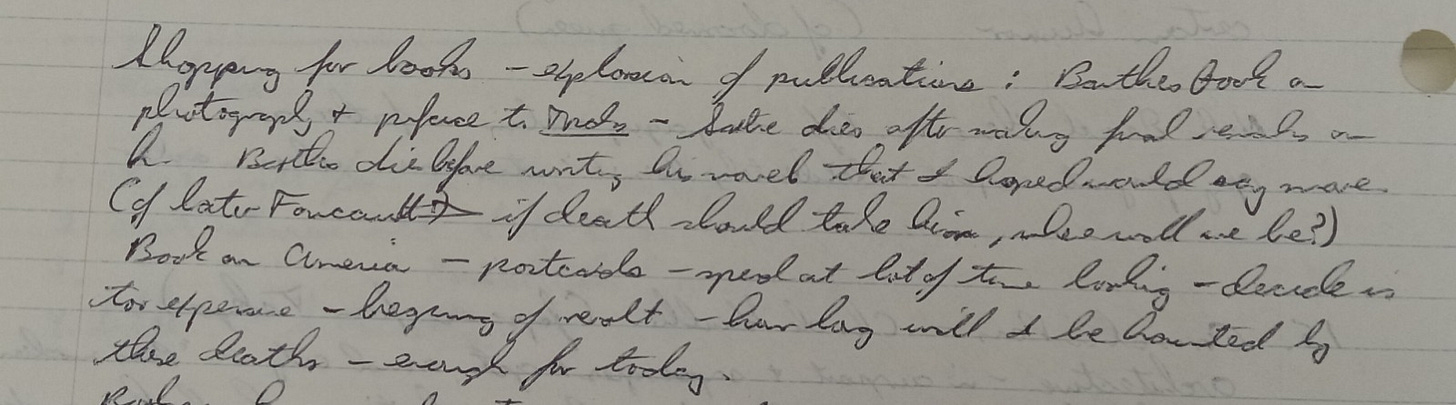 Shopping for books - explosion of publications: Barthes book on
photography + preface to - Sartre dies after making final remarks on
h. Barthes die before writing his novel that I hoped would say more.
(cf later Foucault - if death should take him, where will we be?)
Book on America - postcards - spend a lot of time looking - decide is
too expensive - beginning of revolt - how long will I be haunted by
these deaths - enough for today.